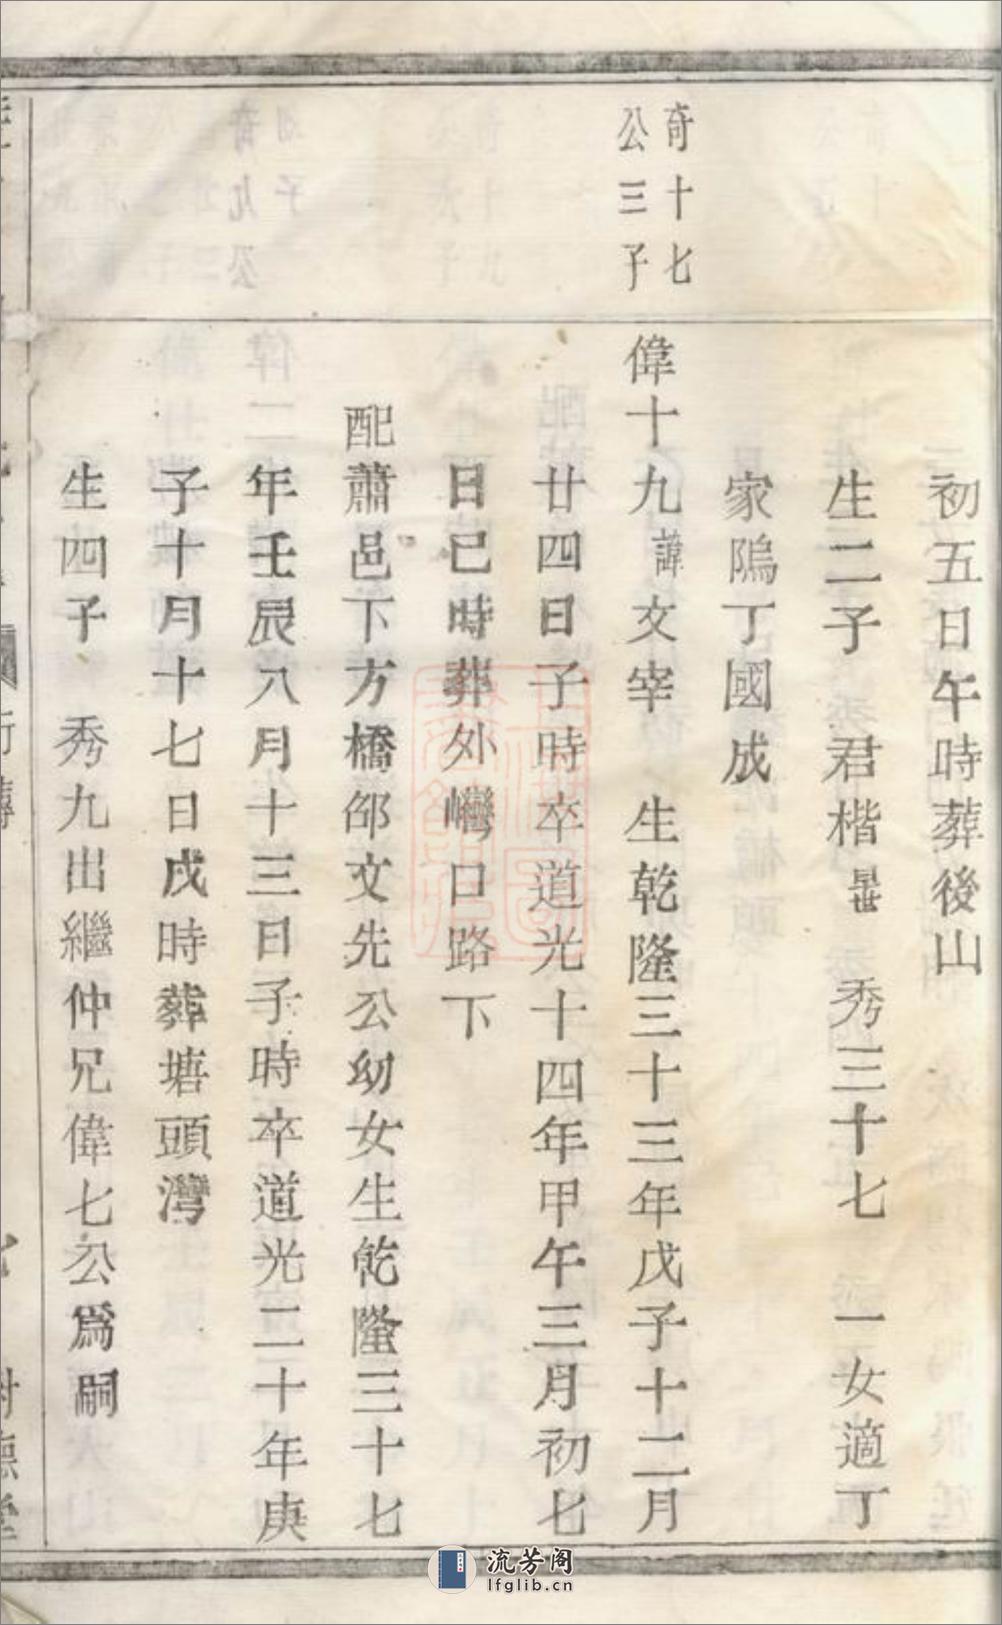 初五日午時葬後山
生二子　君楷早世　秀三十七　一女適丁
家隖丁國成
奇十七
公三子
偉十九諱文宰　生乾隆三十三年戊子十二月
廿四日子時卒道光十四年甲午三月初七
日巳時葬外灣口路下
配蕭邑下方橋邵文先公幼女生乾隆三十七
年壬辰八月十三日子時卒道光二十年庚
子十月十七日戌時葬塘頭灣
生四子　秀九出繼仲兄偉七公爲嗣
流芳阁
lfglib.cn